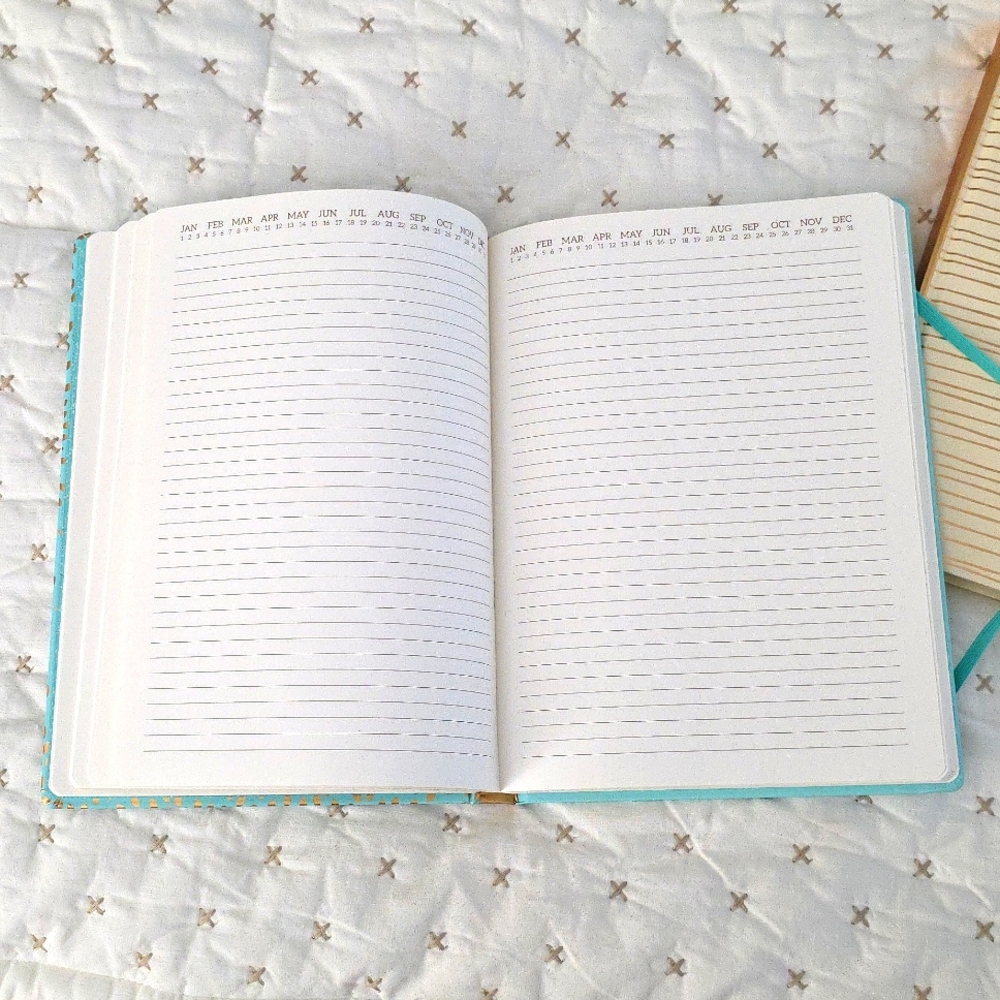 JAN FEB MAR APR MAY JUN JUL AUG SEP OCT NOV DEC
1 2 3 4 5 6 7 8 9 10 11 12 13 14 15 16 17 18 19 20 21 22 23 24 25 26 27 28 29
JAN FEB MAR APR MAY JUN JUL AUG SEP OCT NOV DEC
1 2 3 4 5 6 7 8 9 10 11 12 13 14 15 16 17 18 19 20 21 22 23 24 25 26 27 28 29 30 31